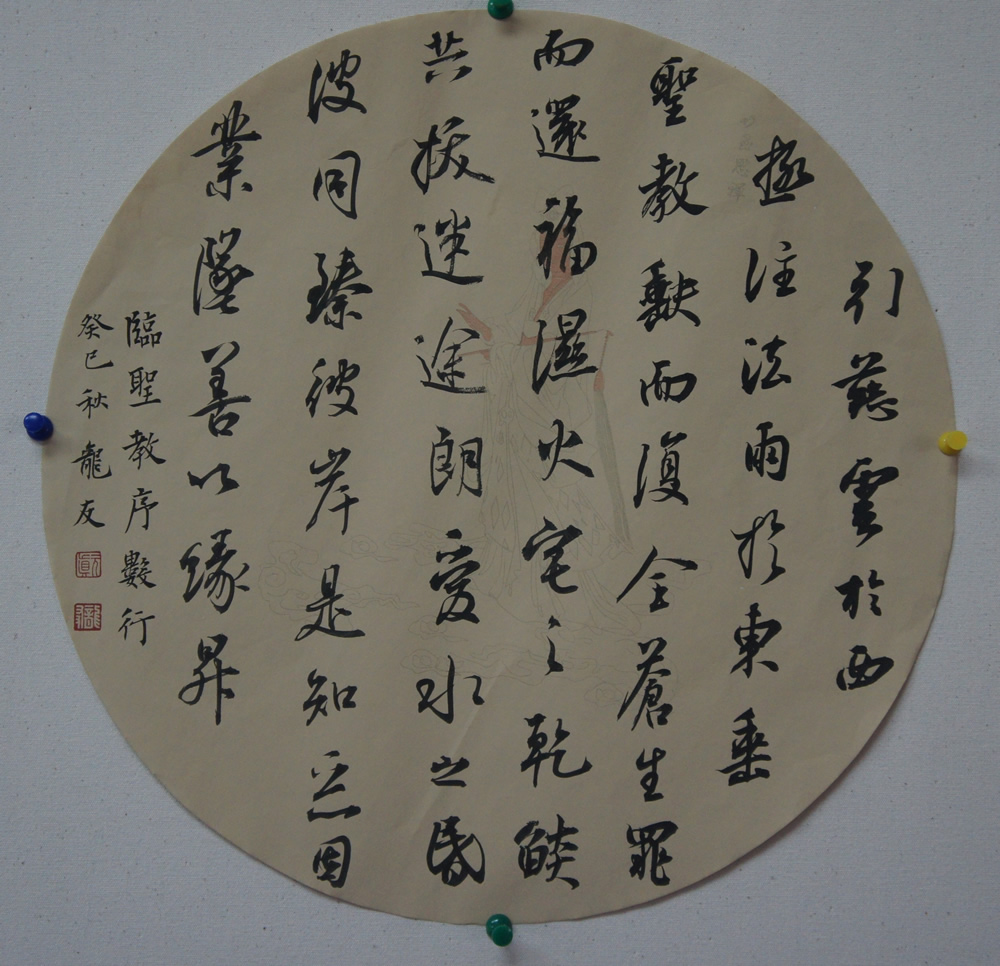 引慈雲於西
極注法雨於東垂
聖教缺而復全蒼生罪
而還福濕火宅之乾燄
共拔迷途朗愛水之昬
波同臻彼岸是知惡因
業墜善以緣昇
臨聖教序數行
癸巳秋龍友